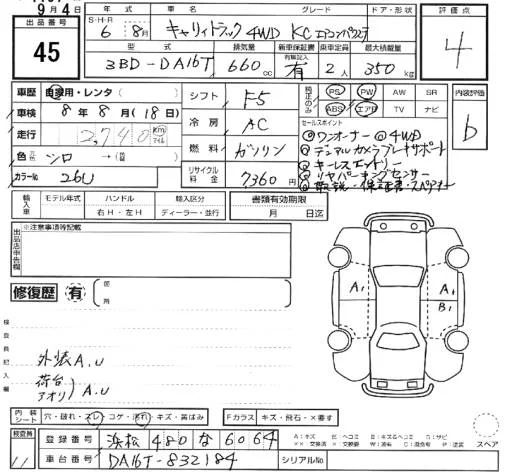 9月4日
出品番号 45
S・H・R 年式 車名 グレード ドア・形状 評価点
6年 8月 キャリイトラック 4WD KC エアコンパワステ 4
型式 排気量 新車保証書 乗車定員 最大積載量
有無記入
3BD-DA16T 660cc 有 2人 350kg
車歴 自家用・レンタ( ) シフト F5 純正のみ PS PW AW SR 内装評価
車検 8年8月(18日) ABS エアB TV ナビ b
走行 2,740 km マイル 冷房 AC セールスポイント
◎ワンオーナー ◎4WD
色 元色 シロ→( ) 燃料 ガソリン ◎デュアルカメラブレーキサポート
◎キーレスエントリー
カラーNo 26U リサイクル料金 7360円 ◎リヤパーキングセンサー
◎取説・保証書・スペアキー
輸入車 モデル年式 ハンドル 輸入区分 書類有効期限
年 右H・左H ディーラー・並行 月 日迄
出品店申告欄 ※注意事項等記載
修復歴 有 箇所
検査員記入欄
A1 A1
B1
外装A.U
荷台
アオリ A.U
内装シート 穴・破れ・スレ・コゲ・汚れ・キズ・黄ばみ Fガラス キズ・飛石・×要す
検査員 11 登録番号 浜松 480 な 6064
A:キズ E:エクボ B:キズ&ヘコミ S:サビ
×× 交換済 × 要交換 W:波有 C:腐食有 P:塗装 スペア
車台番号 DA16T-832184 シリアルNo